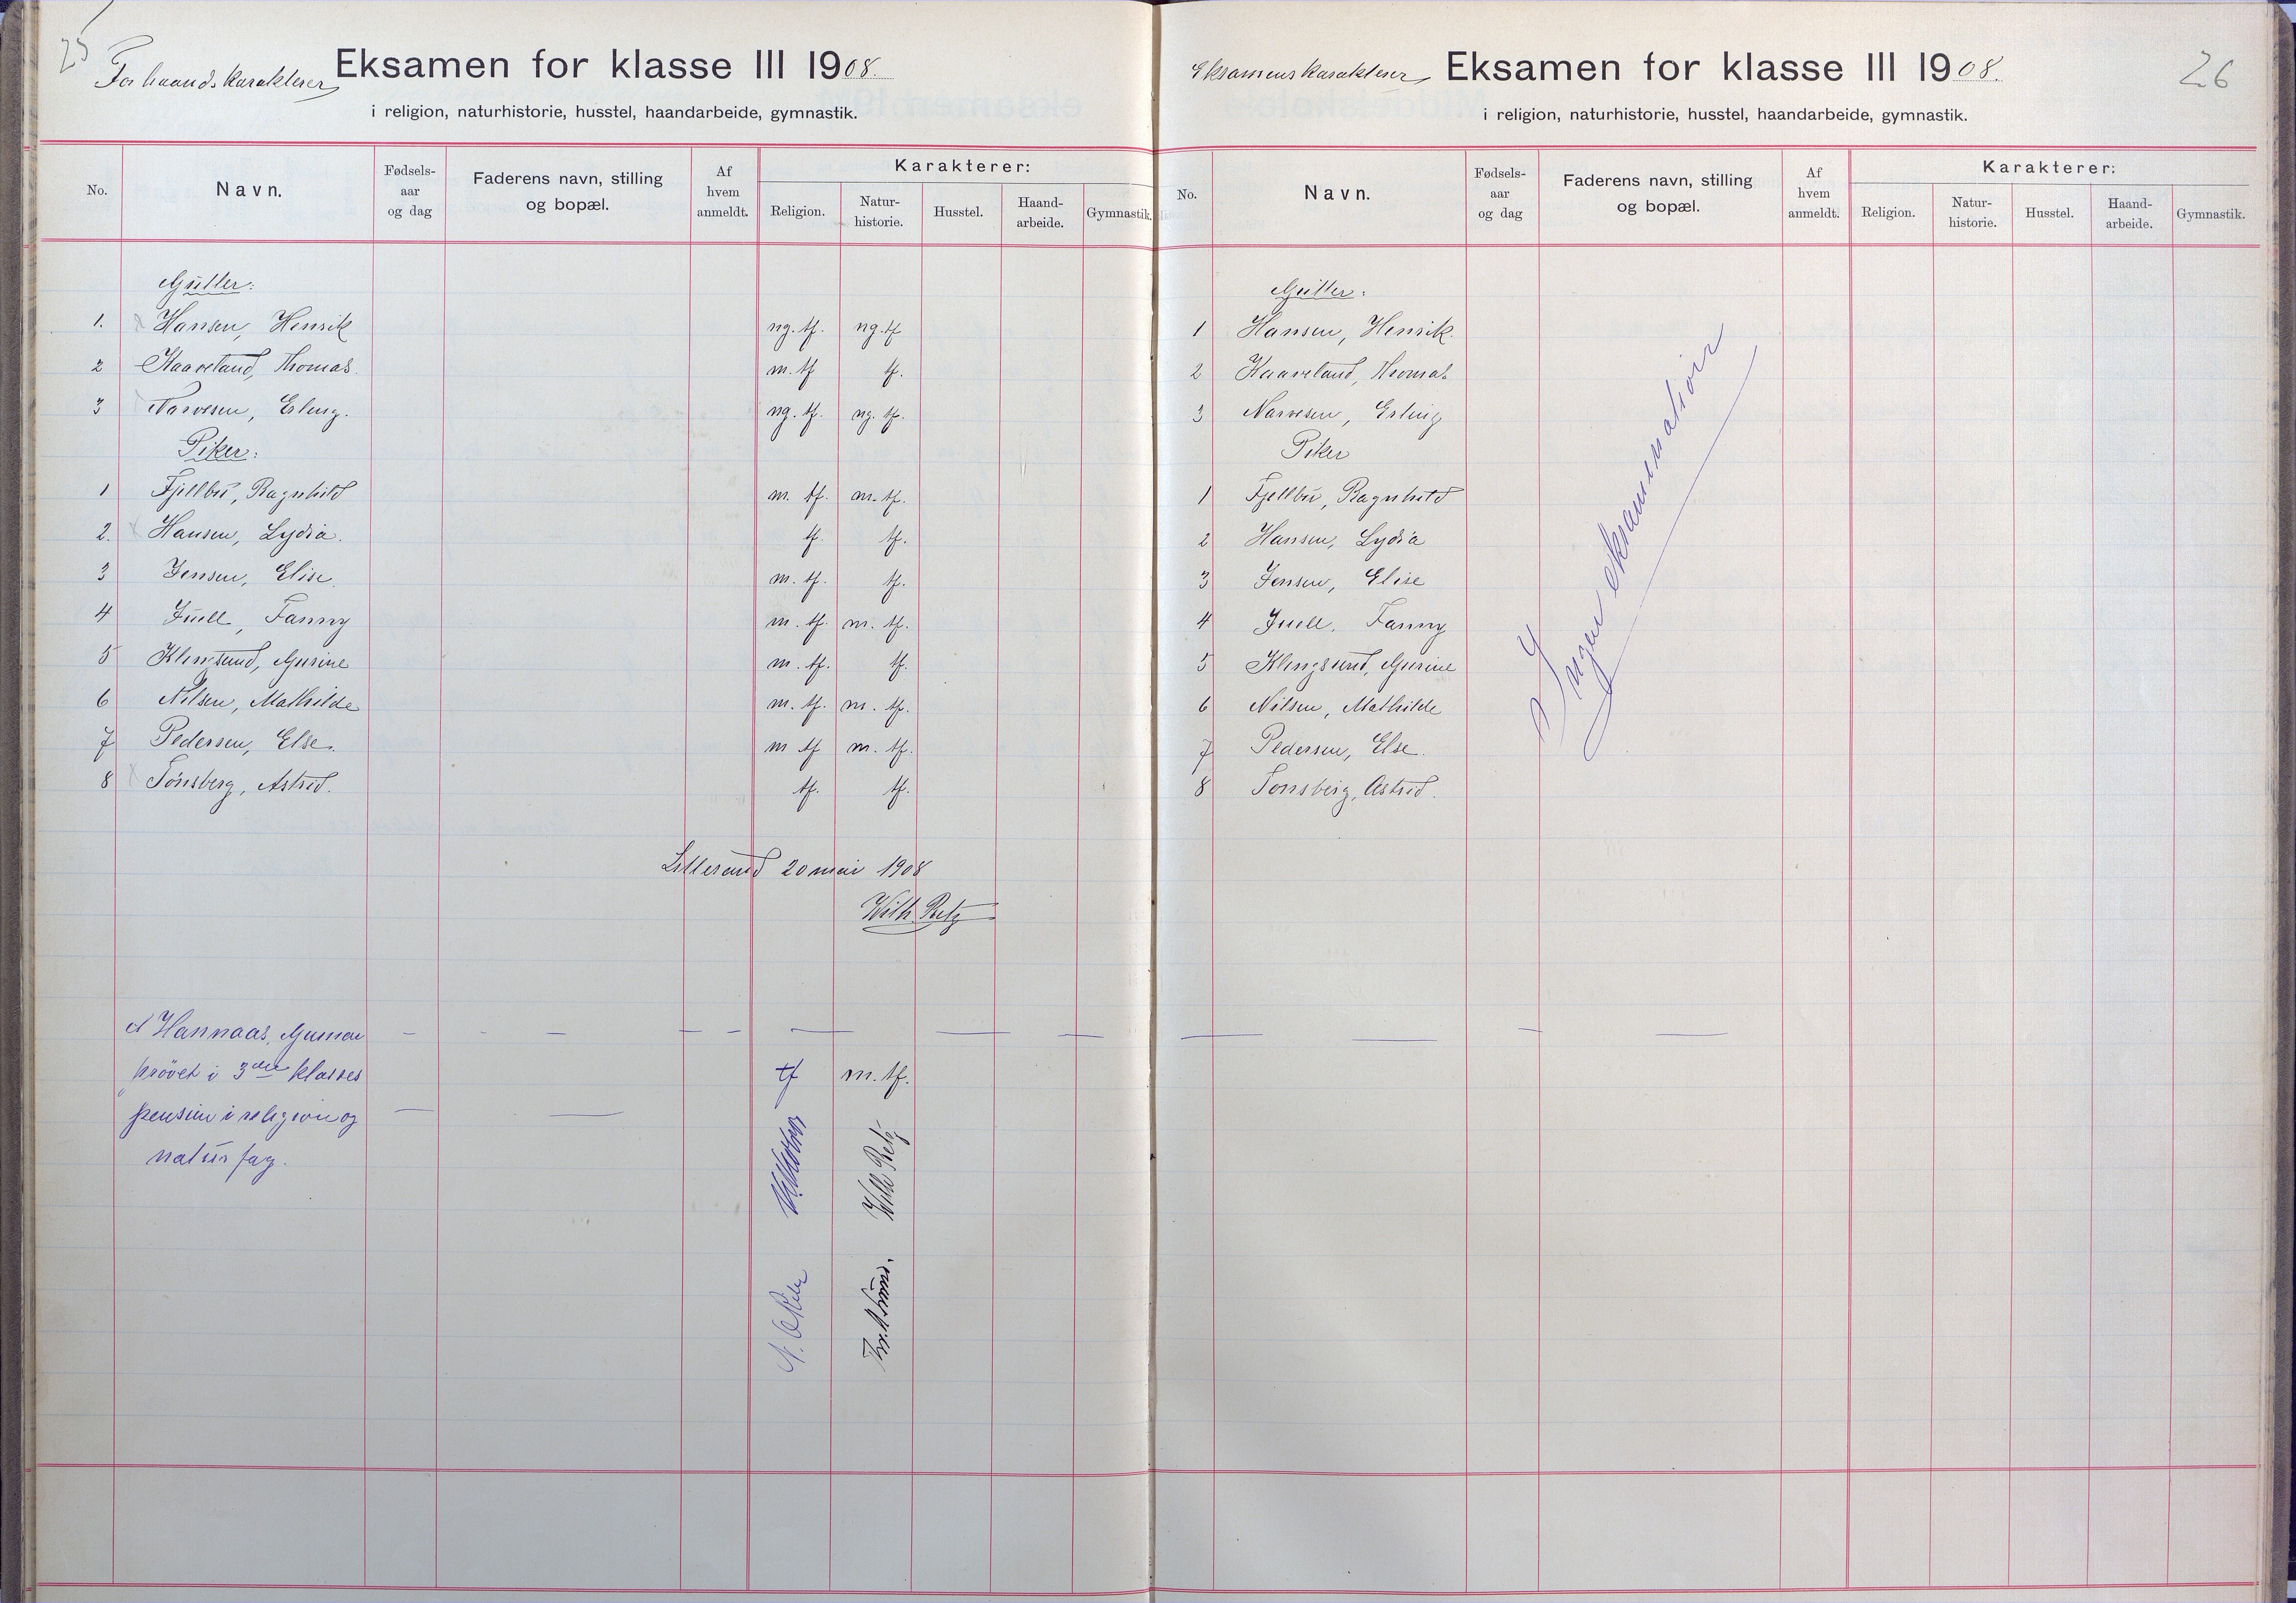 25
Forhaandskarakterer Eksamen for klasse III 1908.
i religion, naturhistorie, husstel, haandarbeide, gymnastik.
No. Navn. Fødsels-aar og dag Faderens navn, stilling og bopæl. Af hvem anmeldt. Karakterer:
Religion. Natur-historie. Husstel. Haand-arbeide. Gymnastik.
Gutter:
1. Hansen, Henrik ng. tf. ng. tf
2 Kaaveland, Thomas. m. tf tf.
3 Narvesen, Erling. ng. tf. ng. tf.
Piker:
1 Fjellbu, Ragnhild m. tf. m. tf.
2. Hansen, Lydia. tf. tf.
3 Jensen, Elise. m. tf. tf.
4 Juell, Fanny m. tf. m. tf.
5 Klingsund, Gurine m. tf. tf.
6 Nilsen, Mathilde m. tf. m. tf.
7 Pedersen, Else. m tf m. tf.
8 Tönsberg, Astrid. tf. tf.
Lillesand 20 mai 1908
Wilh. Retz
Hannaas, Gunnar — — — — — — — — — — — —
prövet i 3die klasses tf m. tf.
pensum i religion og — —
naturfag.
Wilh Retz
Eksamenskarakterer Eksamen for klasse III 1908.
26
i religion, naturhistorie, husstel, haandarbeide, gymnastik.
No. Navn. Fødsels-aar og dag Faderens navn, stilling og bopæl. Af hvem anmeldt. Karakterer:
Religion. Natur-historie. Husstel. Haand-arbeide. Gymnastik.
Gutter:
1 Hansen, Henrik.
2 Kaaveland, Thomas
3 Narvesen, Erling
Piker
1 Fjellbu, Ragnhild
2 Hansen, Lydia
3 Jensen, Elise
4 Juell, Fanny
5 Klingsund, Gurine
6 Nilsen, Mathilde
7 Pedersen, Else.
8 Tonsberg, Astrid.
Ingen eksamination